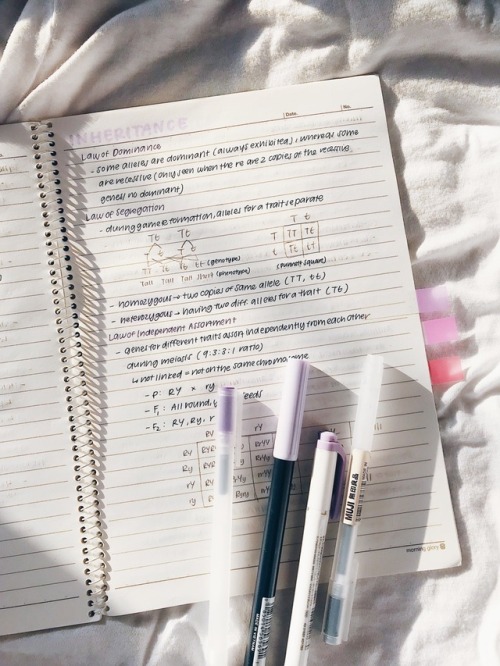 Date. No.
INHERITANCE
Law of Dominance
- some alleles are dominant (always exhibited), whereas some
are recessive (only seen when there are 2 copies of the recessive
genes/no dominant)
Law of Segregation
- during gamete formation, alleles for a trait separate
Tt Tt
TT Tt Tt tt (genotype)
Tall Tall Tall short (phenotype)
T t
T TT Tt
t Tt tt
(Punnett Square)
- homozygous → two copies of same allele (TT, tt)
- heterozygous → having two diff. alleles for a trait (Tt)
Law of Independent Assortment
- genes for different traits assort independently from each other
during meiosis (9:3:3:1 ratio)
↳ not linked = not on the same chromosome
- P: RY × ry
- F₁: All round, seeds
- F₂: RY, Ry, r
RY rY
RY
Ry
rY
ry
MUJI 無印良品
morning glory